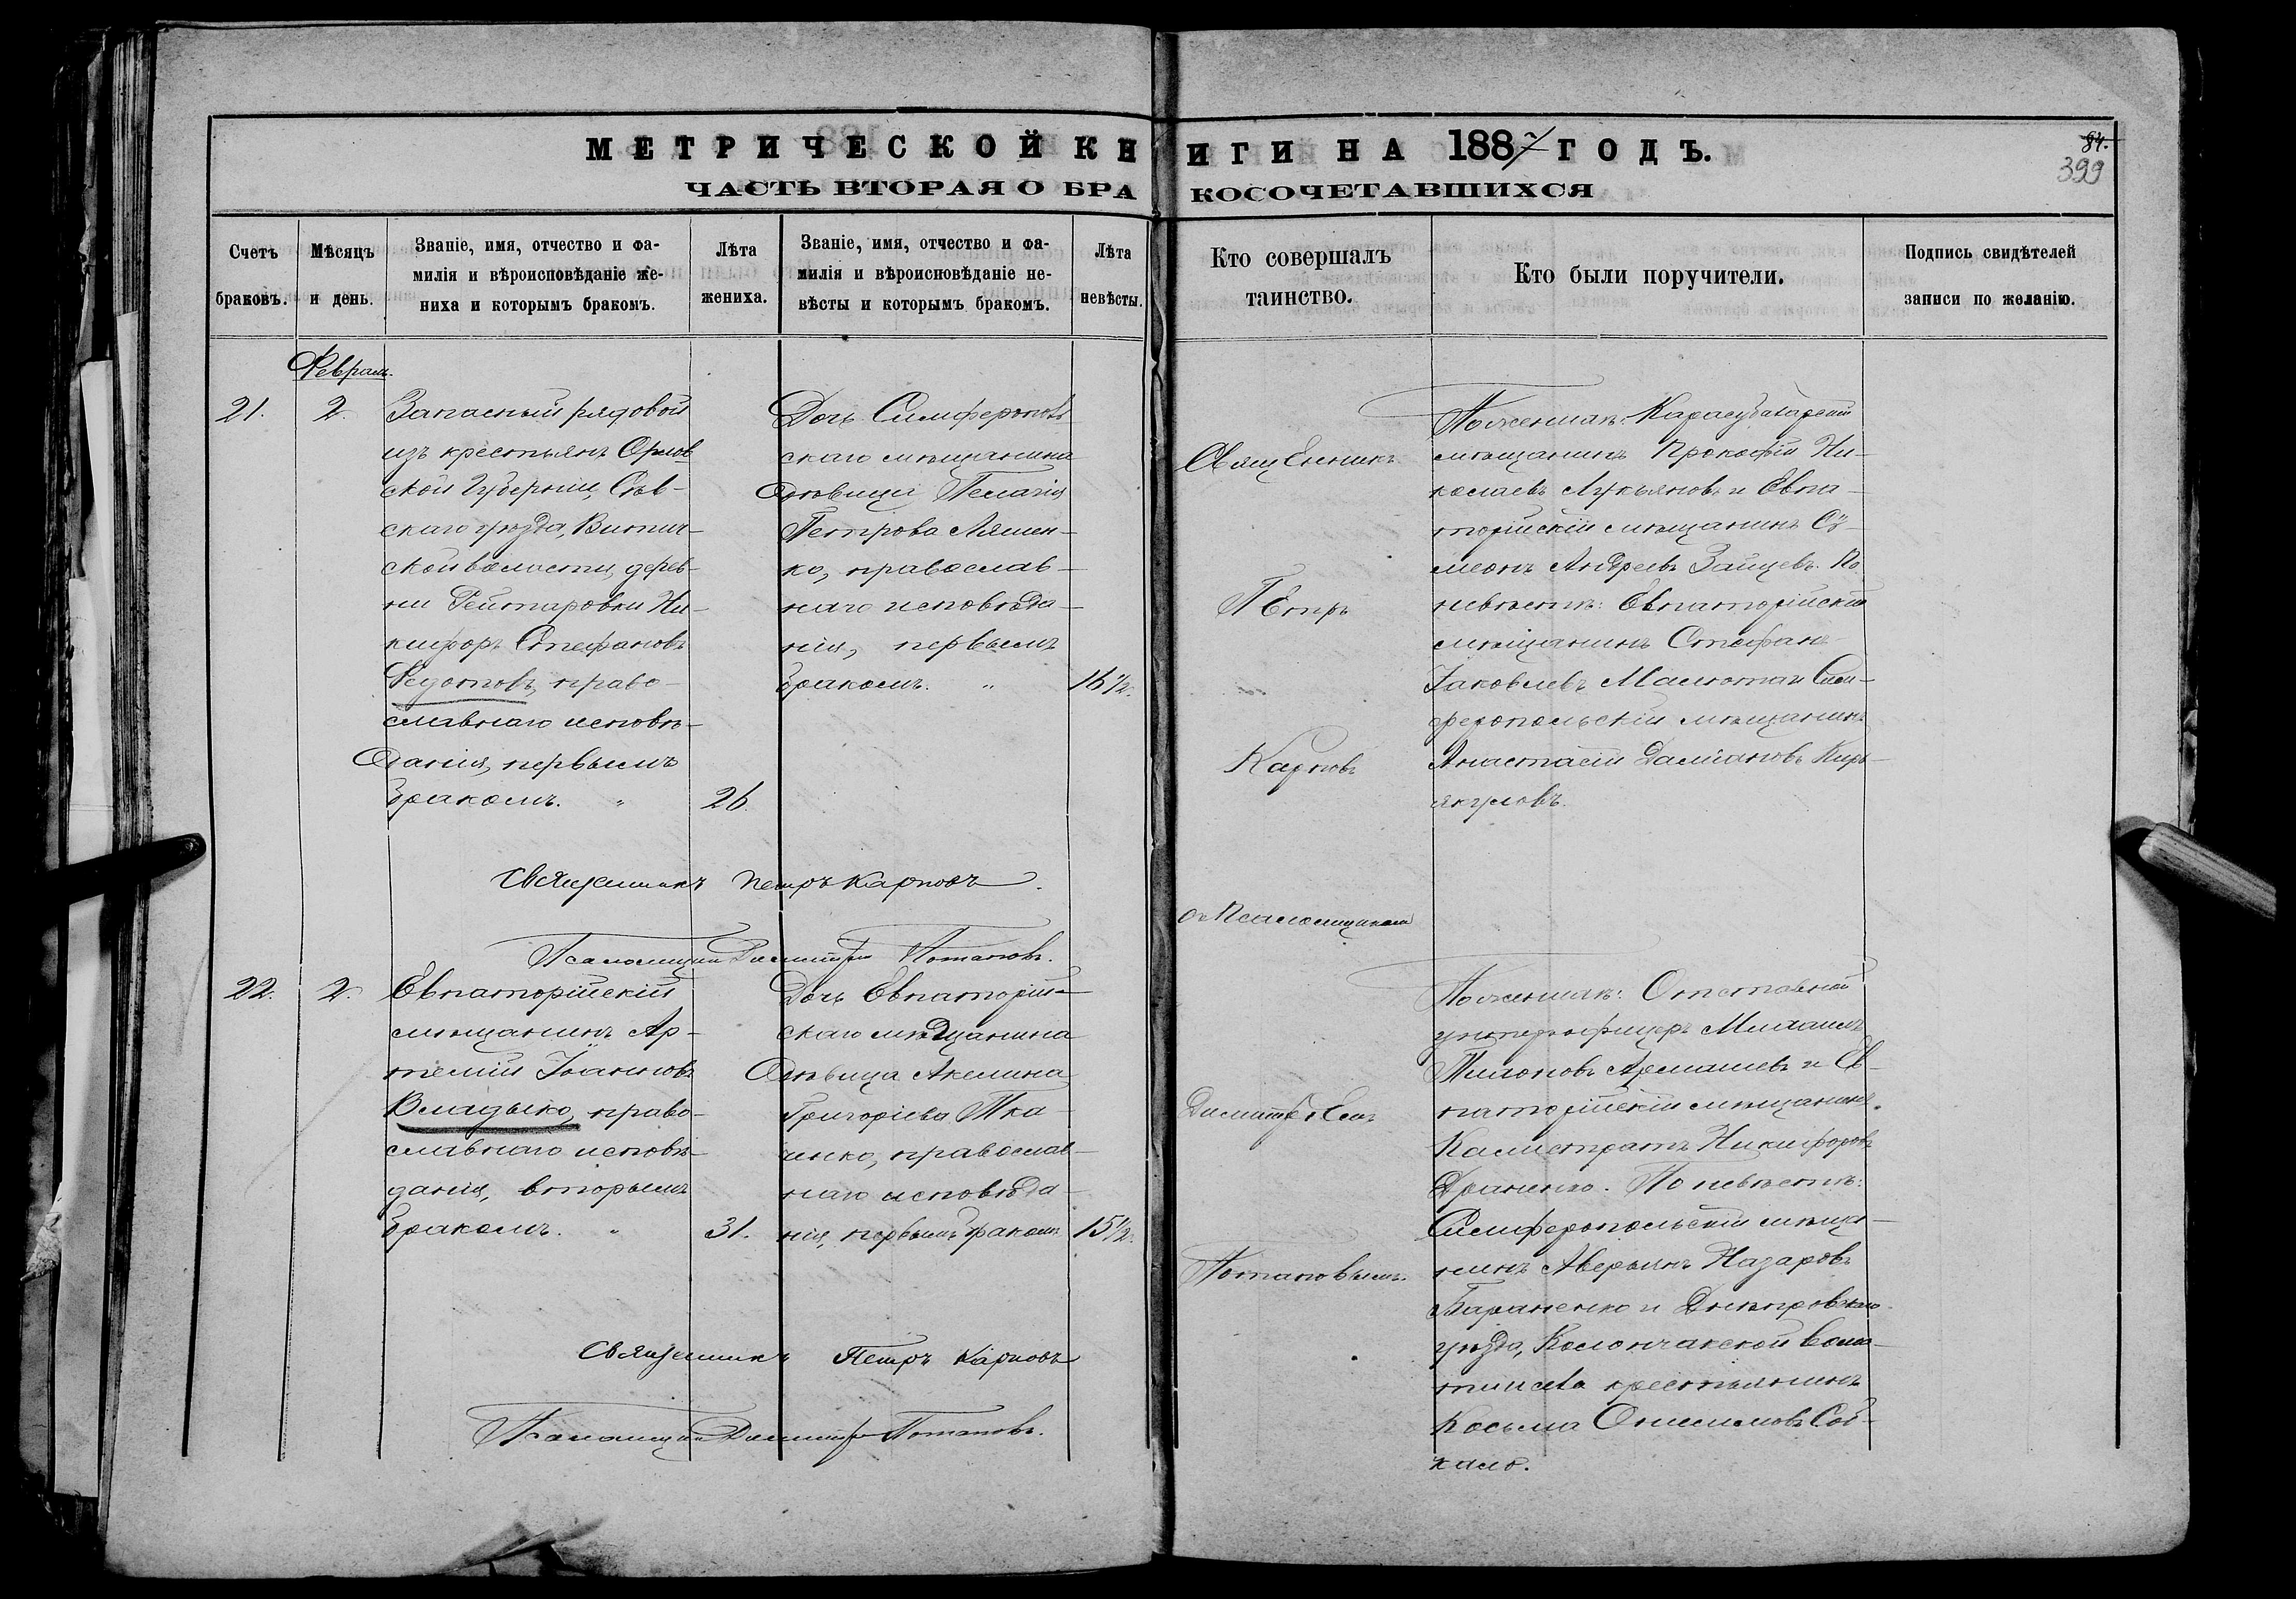 МЕТРИЧЕСКОЙ КНИГИ НА 1887 ГОДЪ.
84.
399
ЧАСТЬ ВТОРАЯ О БРАКОСОЧЕТАВШИХСЯ
Счетъ браковъ.
Мѣсяцъ и день.
Званіе, имя, отчество и фа-
милія и вѣроисповѣданіе же-
ниха и которымъ бракомъ.
Лѣта жениха.
Званіе, имя, отчество и фа-
милія и вѣроисповѣданіе не-
вѣсты и которымъ бракомъ.
Лѣта невѣсты.
Кто совершалъ
таинство.
Кто были поручители.
Подпись свидѣтелей
записи по желанію.
Феврал.
21.
2.
Запасный рядовой
изъ крестьянъ Орлов
ской Губерніи, Сѣв-
скаго уѣзда,
ской волости, дерев-
ни Рейтаровки Ни-
кифоръ Стефановъ
Федотовъ, право-
славнаго исповѣ-
данія, первымъ
бракомъ. "
26.
Дочь Симферополь
скаго мѣщанина
дѣвица Пелагія
Петрова Ляшен-
ко, православ-
наго исповѣда-
нія, первымъ
бракомъ. "
16 1/2.
Священникъ
Петръ
Карповъ
съ Псаломщикомъ
Димитріемъ
Потаповымъ.
По женихѣ: Карасубазарскій
мѣщанинъ Прокофій Ни-
колаевъ Лукьяновъ и Евпа-
торійскій мѣщанинъ Сѵ-
меонъ Андреевъ Зайцевъ. По
невѣстѣ: Евпаторійскій
мѣщанинъ Стефанъ
Іаковлевъ Малюта и Сим-
феропольскій мѣщанинъ
Анастасій Даміановъ Кирь-
якуловъ.
Священникъ Петръ Карповъ.
Псаломщикъ Димитрій Потаповъ.
22.
2.
Евпаторійскій
мѣщанинъ Ар-
темій Іоанновъ
Владыко, право-
славнаго исповѣ-
данія, вторымъ
бракомъ. "
31.
Дочь Евпаторій-
скаго мѣщанина
дѣвица Акелина
Григоріева Тка-
ченко, православ-
наго исповѣда-
нія, первымъ бракомъ
15 1/2.
По женихѣ: Отставной
унтерофицеръ Михаилъ
и Ев-
паторійскій мѣщанинъ
Калистратъ Никифоровъ
По невѣстѣ:
Симферопольскій мѣща-
нинъ Аверьянъ Назаровъ
Бараненко и Днѣпровскаго
уѣзда, Колончакской воло-
сти села крестьянинъ
Косьма Онисимовъ Сой-
кало.
Священникъ Петръ Карповъ
Псаломщикъ Димитрій Потаповъ.